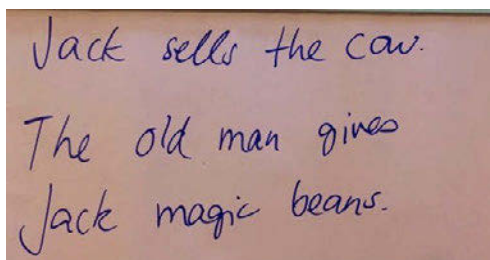 Jack sells the cow.
The old man gives
Jack magic beans.